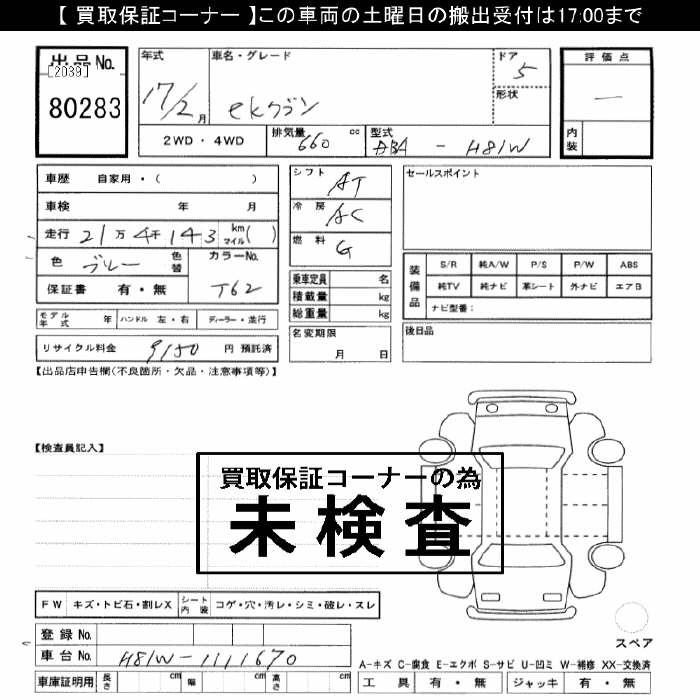 【 買取保証コーナー 】この車両の土曜日の搬出受付は17:00まで
出品No.
[2039]
80283
年式
17/2 月
車名・グレード
ekワゴン
ドア
5
形状
評価点
—
内装
2WD・4WD
排気量 660 cc
型式 ABA - H81W
車歴 自家用・( )
車検 年 月
走行 21万4千143 km マイル( )
色 ブルー 色替
カラーNo.
T62
保証書 有・無
モデル年式 年
ハンドル 左・右
ディーラー・並行
リサイクル料金 9150 円 預託済
シフト AT
冷房 AC
燃料 G
乗車定員 名
積載量 kg
総重量 kg
名変期限
月 日
セールスポイント
装備品
S/R 純A/W P/S P/W ABS
純TV 純ナビ 革シート 外ナビ エアB
ナビ型番：
後日品
【出品店申告欄(不良箇所・欠品・注意事項等)】
【検査員記入】
買取保証コーナーの為
未検査
FW キズ・トビ石・割レX
シート内装 コゲ・穴・汚レ・シミ・破レ・スレ
登録No.
車台No. H81W-1111670
車庫証明用 長さ cm 幅 cm 高さ cm
スペア
A-キズ C-腐食 E-エクボ S-サビ U-凹ミ W-補修 XX-交換済
工具 有・無 ジャッキ 有・無